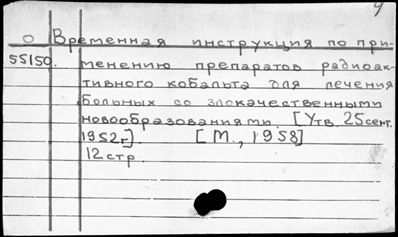 4
О Временная инструкция по при-
55150. менению препаратов радиоак-
тивного кобальта для лечения
больных со злокачественными
новообразованиями. [Утв. 25 сент.
1952 г.] [М., 1958]
12 стр.